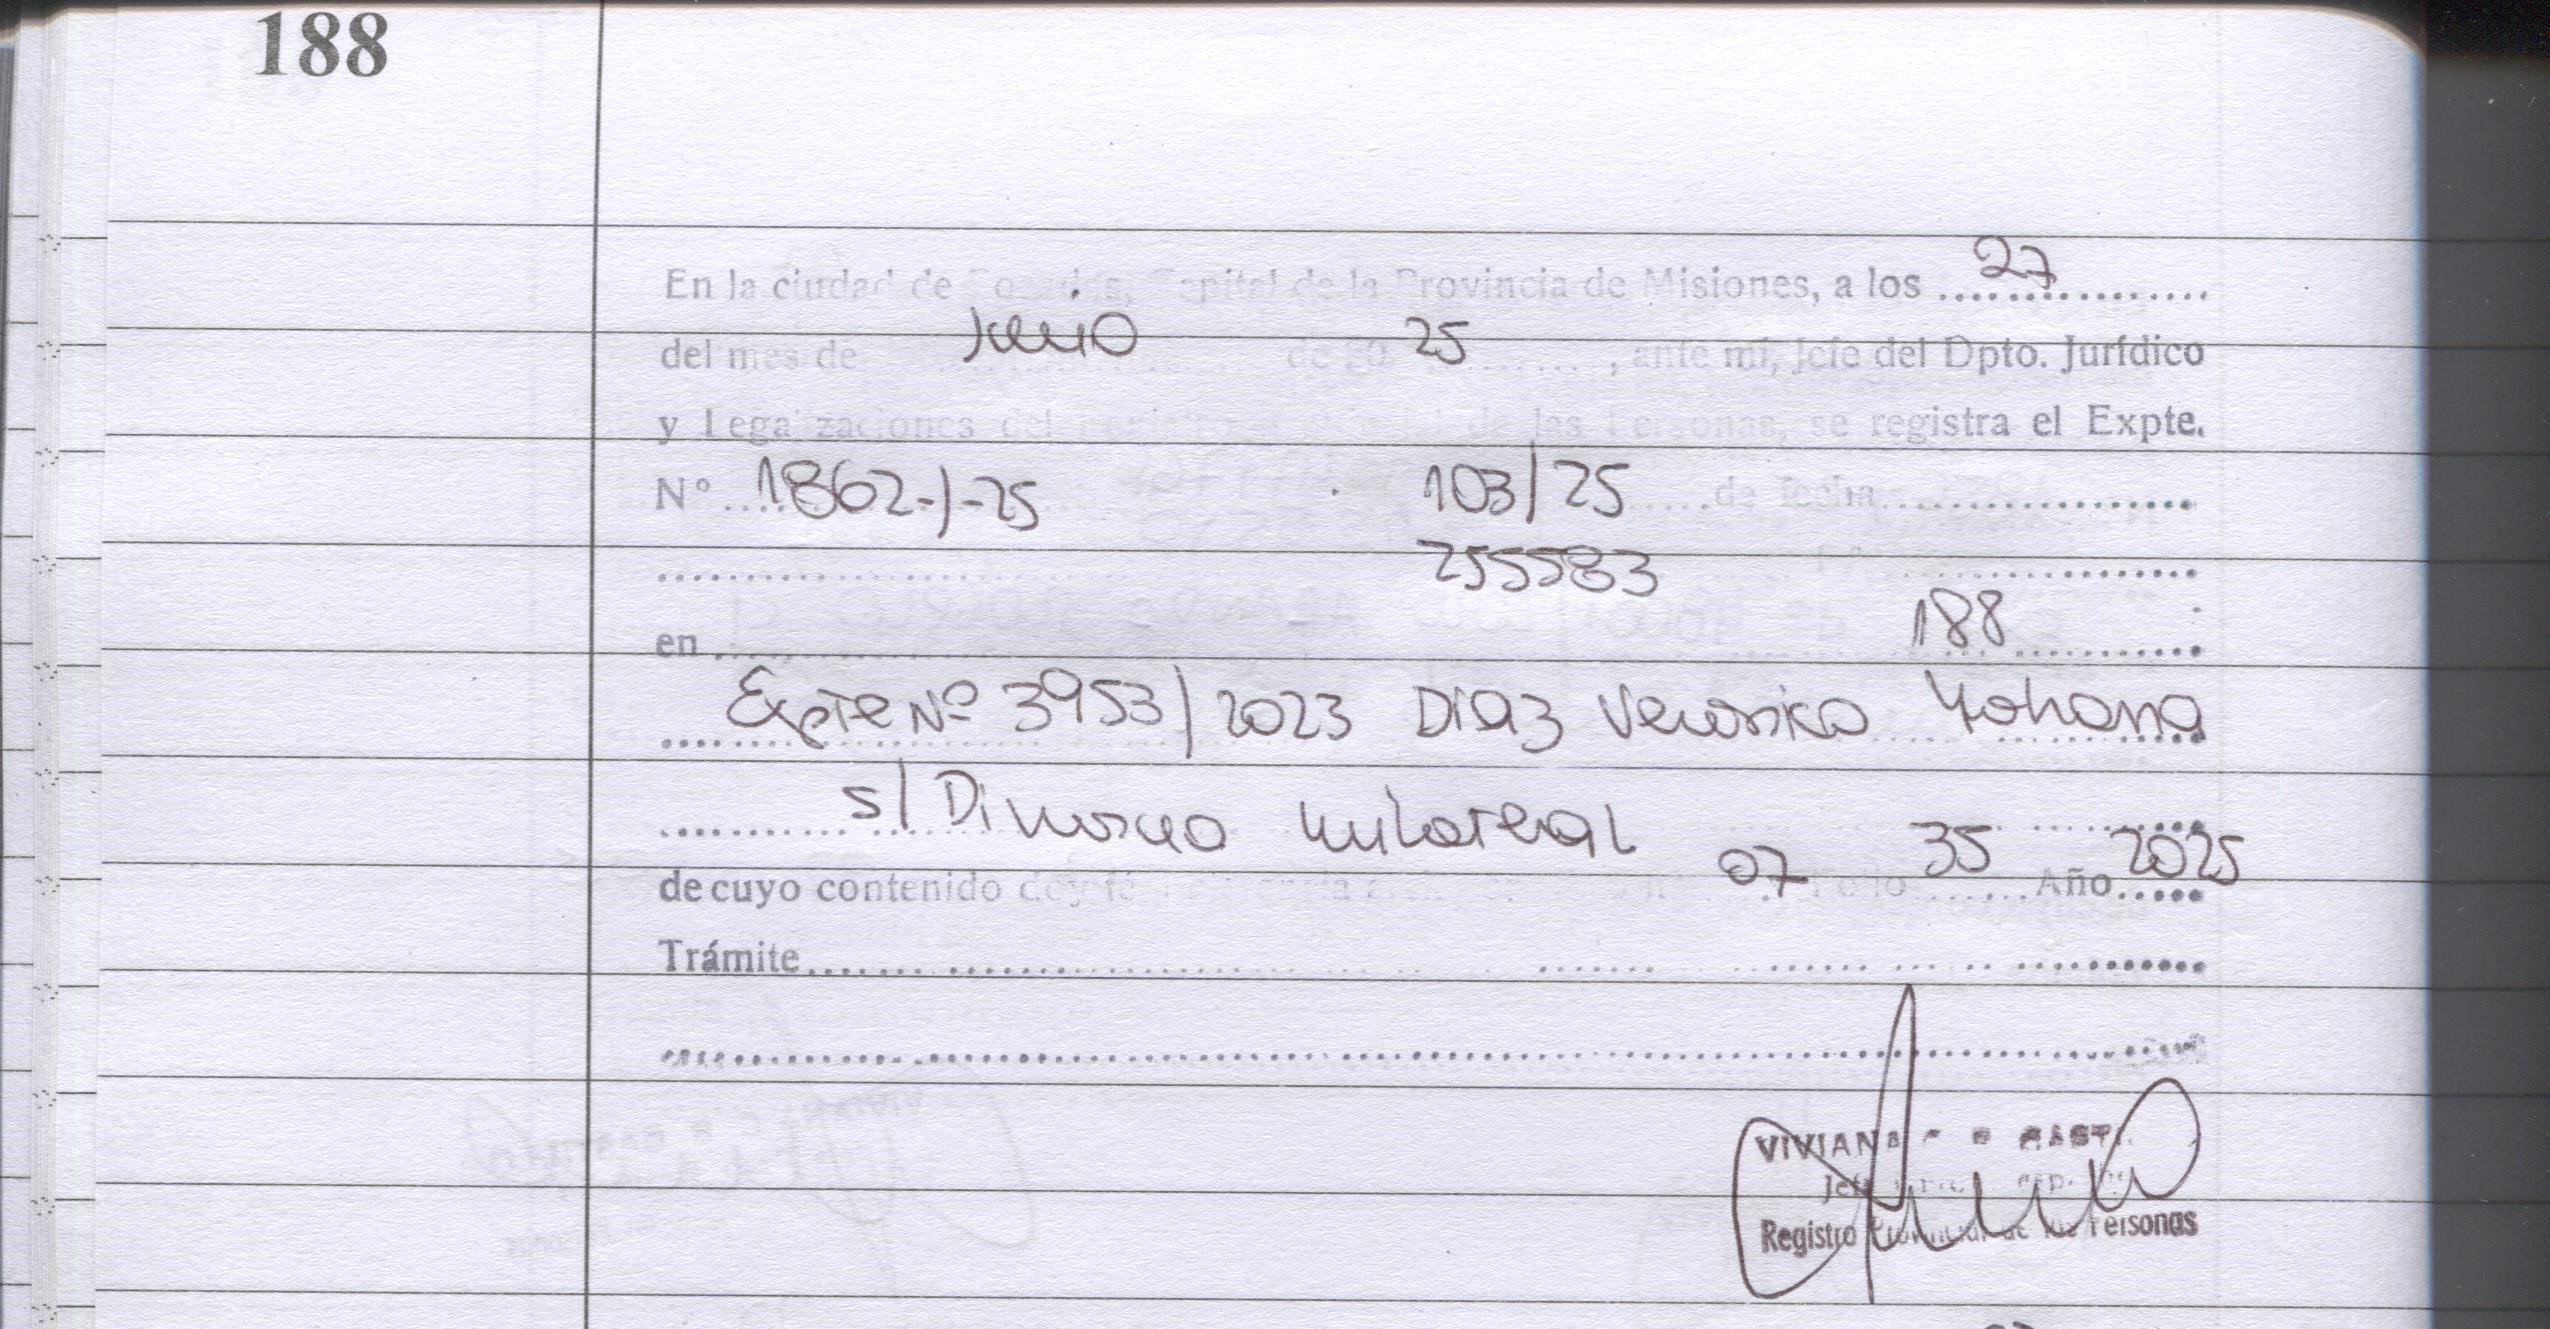 188
En la ciudad de Posadas, Capital de la Provincia de Misiones, a los 27
del mes de Junio de 20 25, ante mi, Jefe del Dpto. Jurídico
y Legalizaciones del de las Personas, se registra el Expte.
Nº 1862-J-25 103/25 de fecha
255583
en 188
Expte Nº 3953/2023 Diaz Veronica Yohana
s/ Divorcio Unilateral
de cuyo contenido doy fé 07 Folio 35 Año 2025
Trámite
VIVIANA
Jefe
Registro Provincial de las Personas